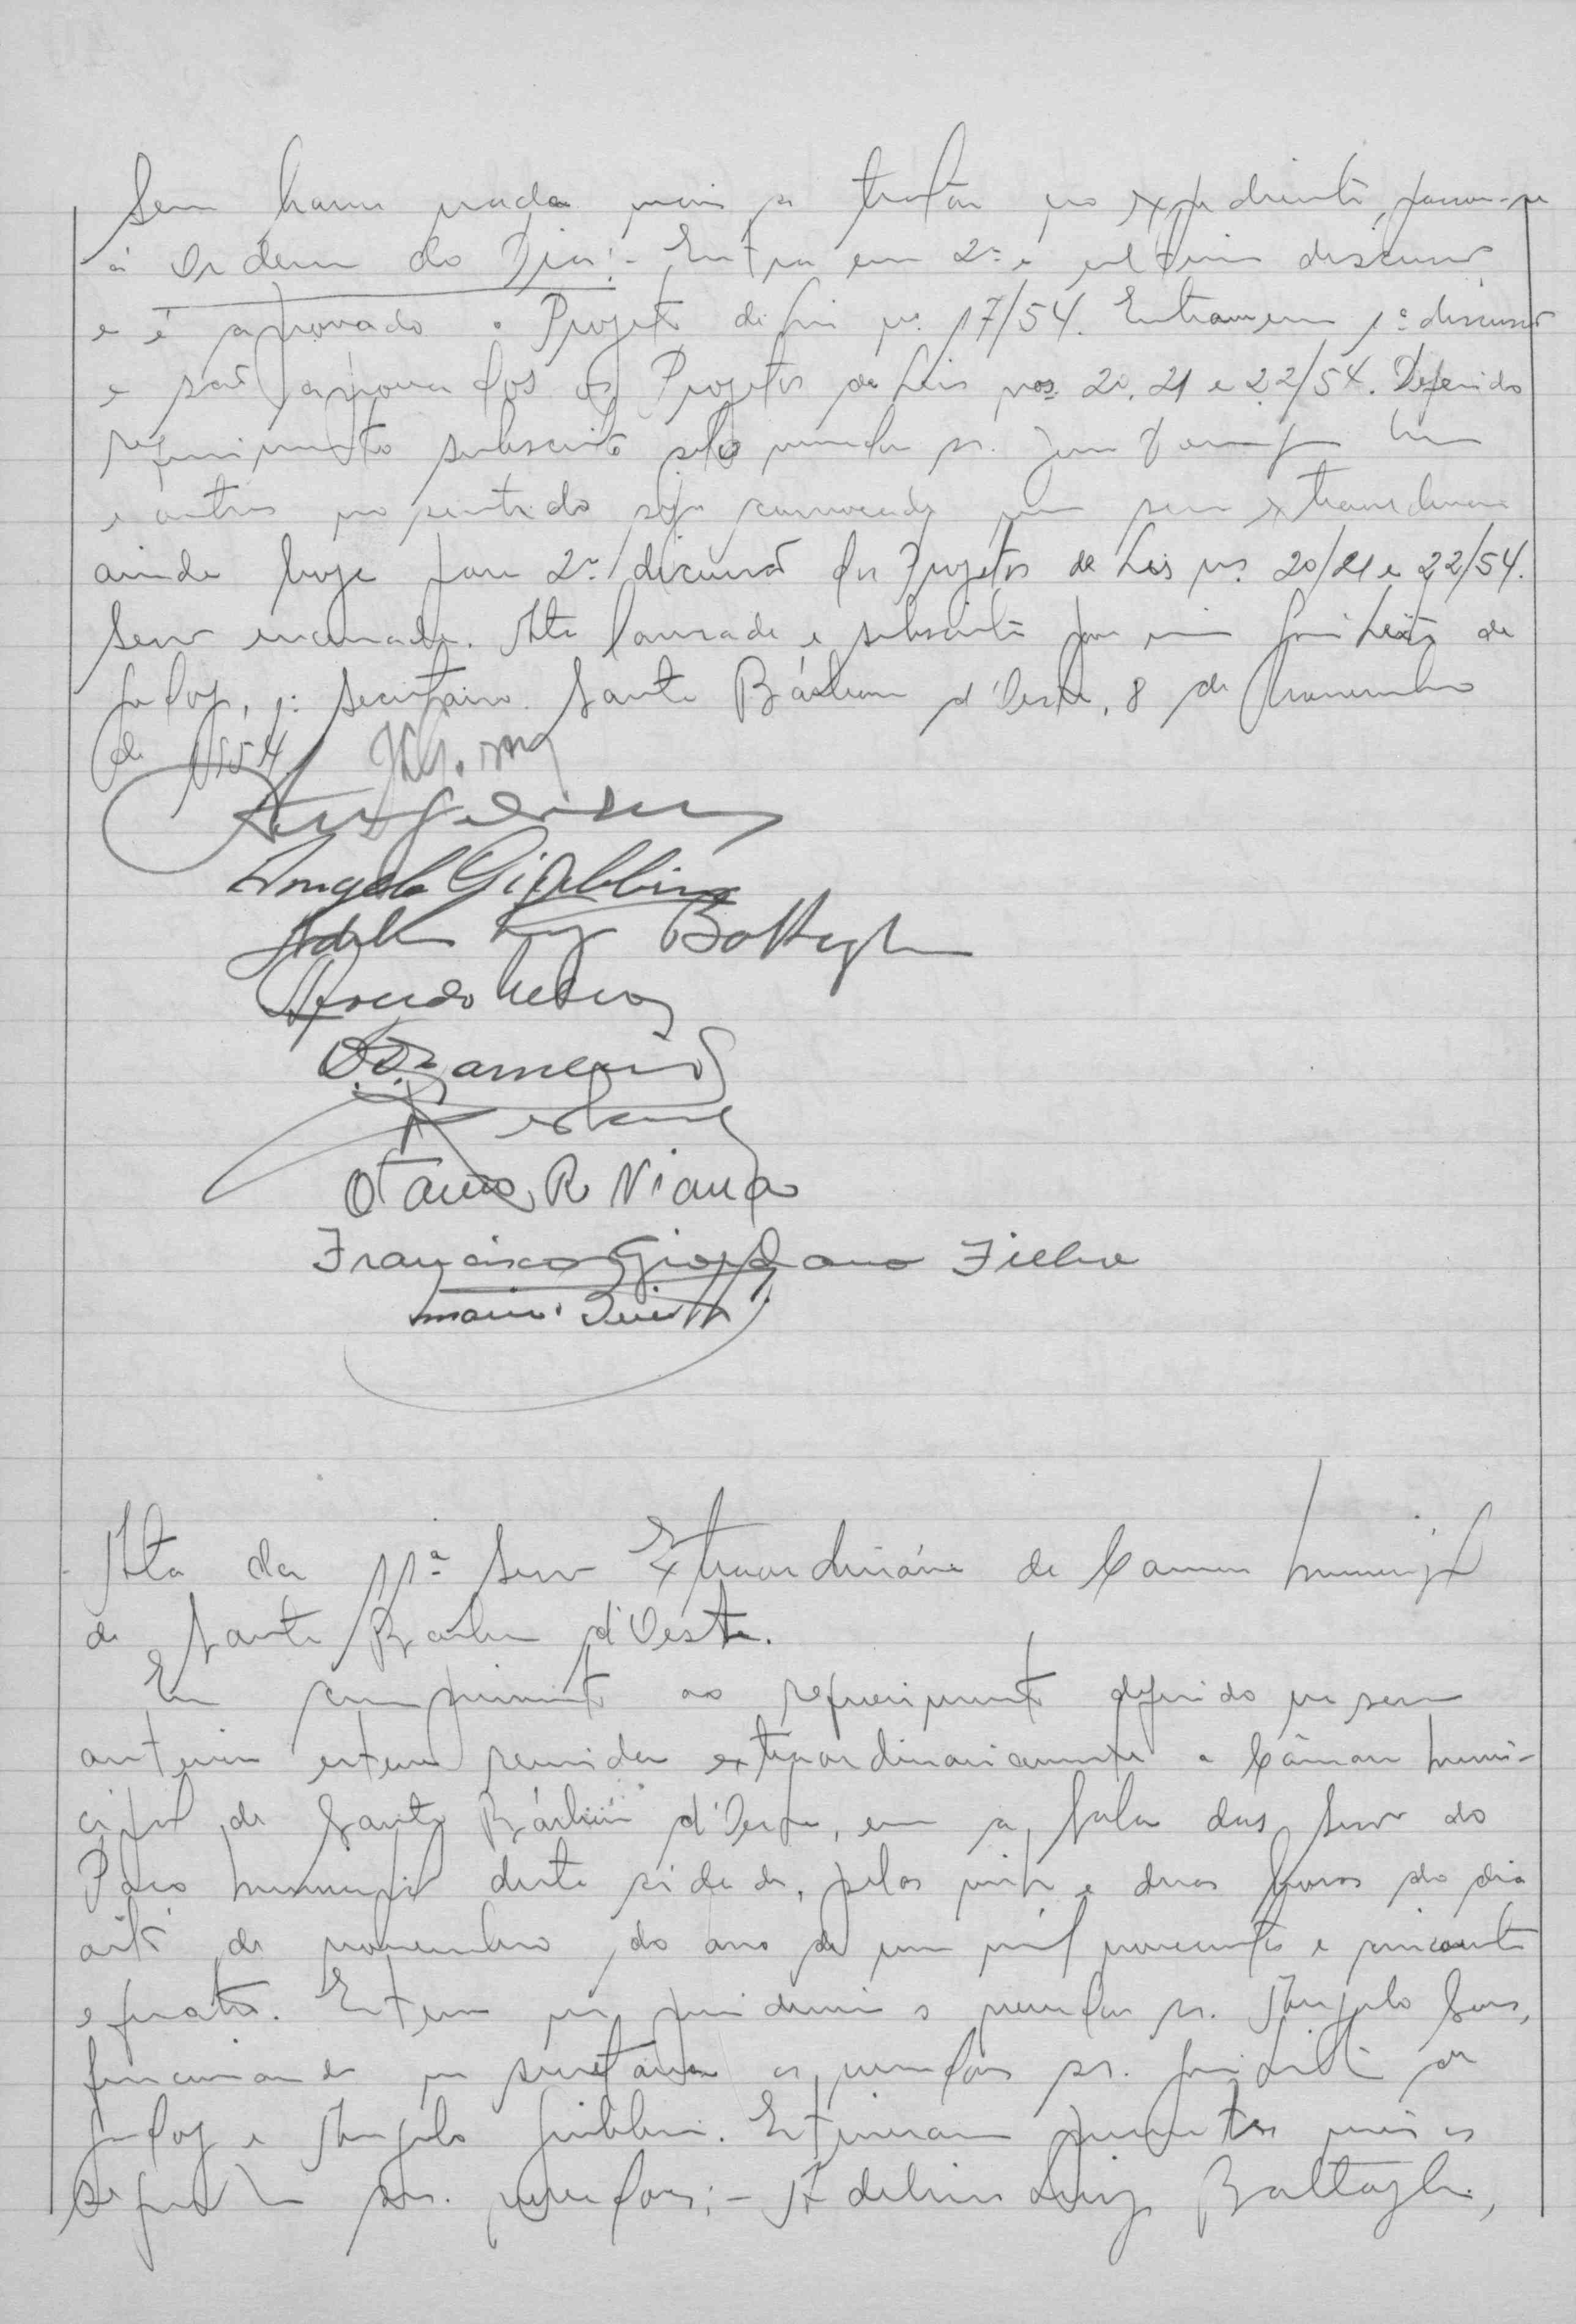 Sem haver nada mais a tratar no expediente, passou-se
á Ordem do Dia:- Entra em 2ª e ultima discussão
e é aprovado o Projeto de Lei nº. 17/54. Entram em 1ª discussão
e são aprovados os Projetos de Leis nos. 20, 21 e 22/54. Deferido
requerimento subscrito pelo vereador sr.
e outros no sentido seja convocada uma sessão extraordinaria
ainda hoje para 2ª discussão dos Projetos de Leis nos. 20/21 e 22/54.
Sessão encerrada. Ata lavrada e subscrita por mim José Leite de
Godoy, 1º Secretário. Santa Bárbara d'Oeste, 8 de Novembro
de 1954
Angelo Giubbina
Battaglia
Otavio R Viana
Francisco Giordano Filho
Ata da 11ª Sessão Extraordinária da Camara Municipal
de Santa Barbara d'Oeste.
Em cumprimento ao requerimento deferido na sessão
anterior esteve reunida extraordinariamente a Câmara Muni-
cipal de Santa Bárbara d'Oeste, em a sala das sessões do
Paço Municipal desta cidade, pelas vinte e duas horas do dia
oito de novembro do ano de um mil novecentos e cincoenta
e quatro. Esteve na presidencia o vereador sr. Angelo
funcionando na secretaria os vereadores srs. José Leite de
Godoy e Angelo Giubbina. Estiveram presentes mais os
seguintes srs. vereadores:- Adelino Luiz Battaglia,